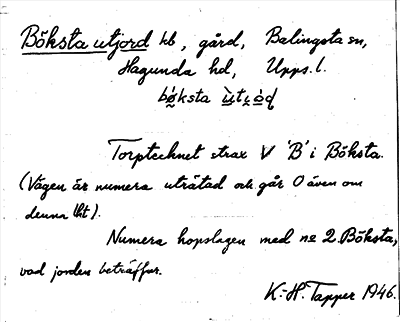 Böksta utjord kb, gård, Balingsta sn,
Hagunda hd, Upps. l.
bø̀ksta ùtjòḍ
Torptecknet strax V 'B' i Böksta.
(Vägen är numera uträtad och går O även om
denna lht).
Numera hopslagen med no 2 Böksta,
vad jorden beträffar.
K.-H. Tapper 1946.